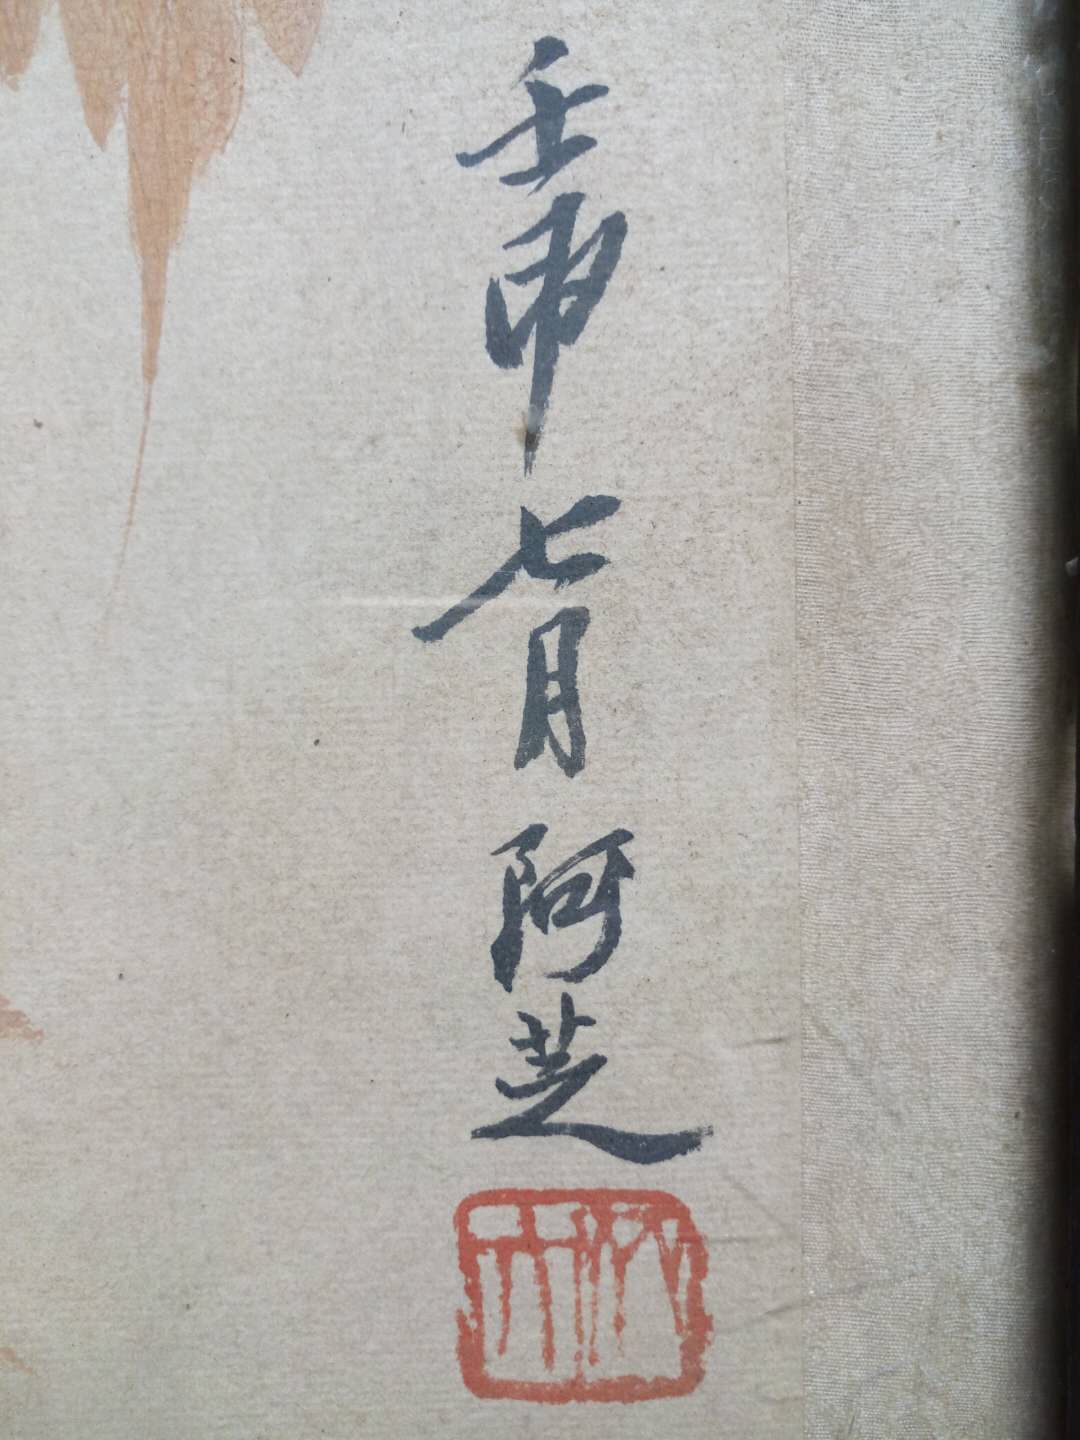 壬申七月阿芝